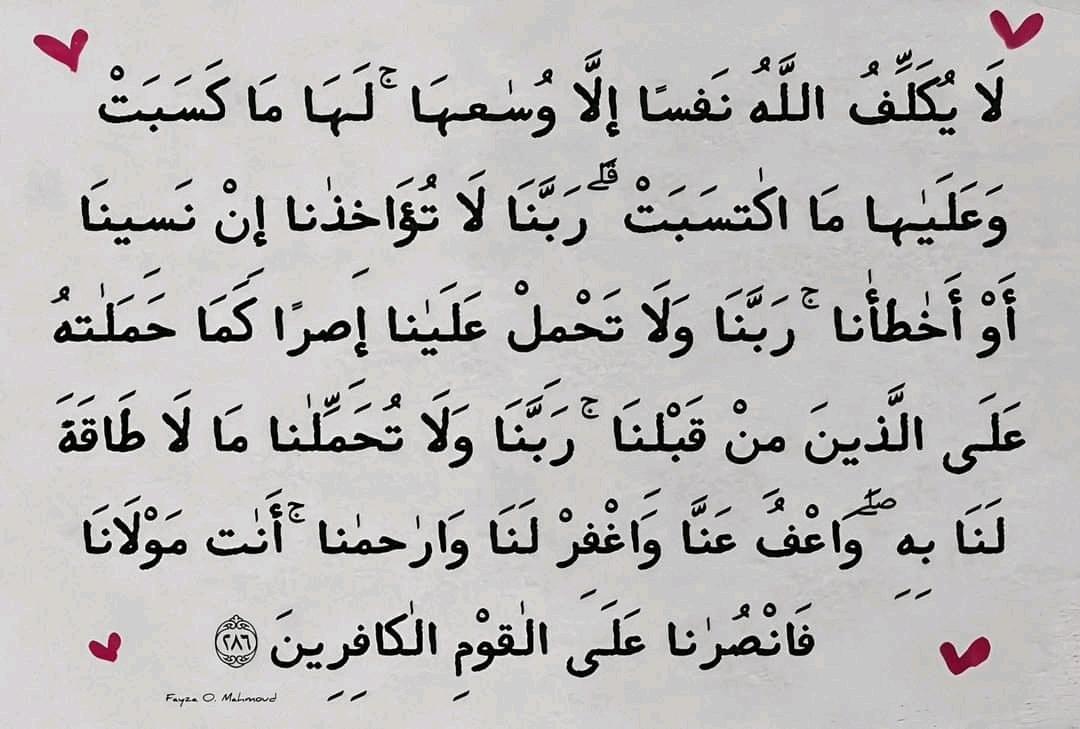 لَا يُكَلِّفُ اللَّهُ نَفسًا إِلَّا وُسعهَا ۚ لَهَا مَا كَسَبَتْ
وَعَلَيها مَا اكتسَبَتْ ۗ رَبَّنَا لَا تُؤَاخذنا إِنْ نَسينَا
أَوْ أَخطأنا ۚ رَبَّنَا وَلَا تَحْملْ عَلَينا إِصرًا كَمَا حَمَلتهُ
عَلَى الَّذينَ منْ قَبْلنَا ۚ رَبَّنَا وَلَا تُحَمِّلنا مَا لَا طَاقَةَ
لَنَا بِهِ ۖ وَاعْفُ عَنَّا وَاغْفِرْ لَنَا وَارحمنا ۚ أَنت مَوْلَانَا
فَانْصُرنا عَلَى القوْمِ الكافِرِينَ ٢٨٦
Fayza O. Mahmoud